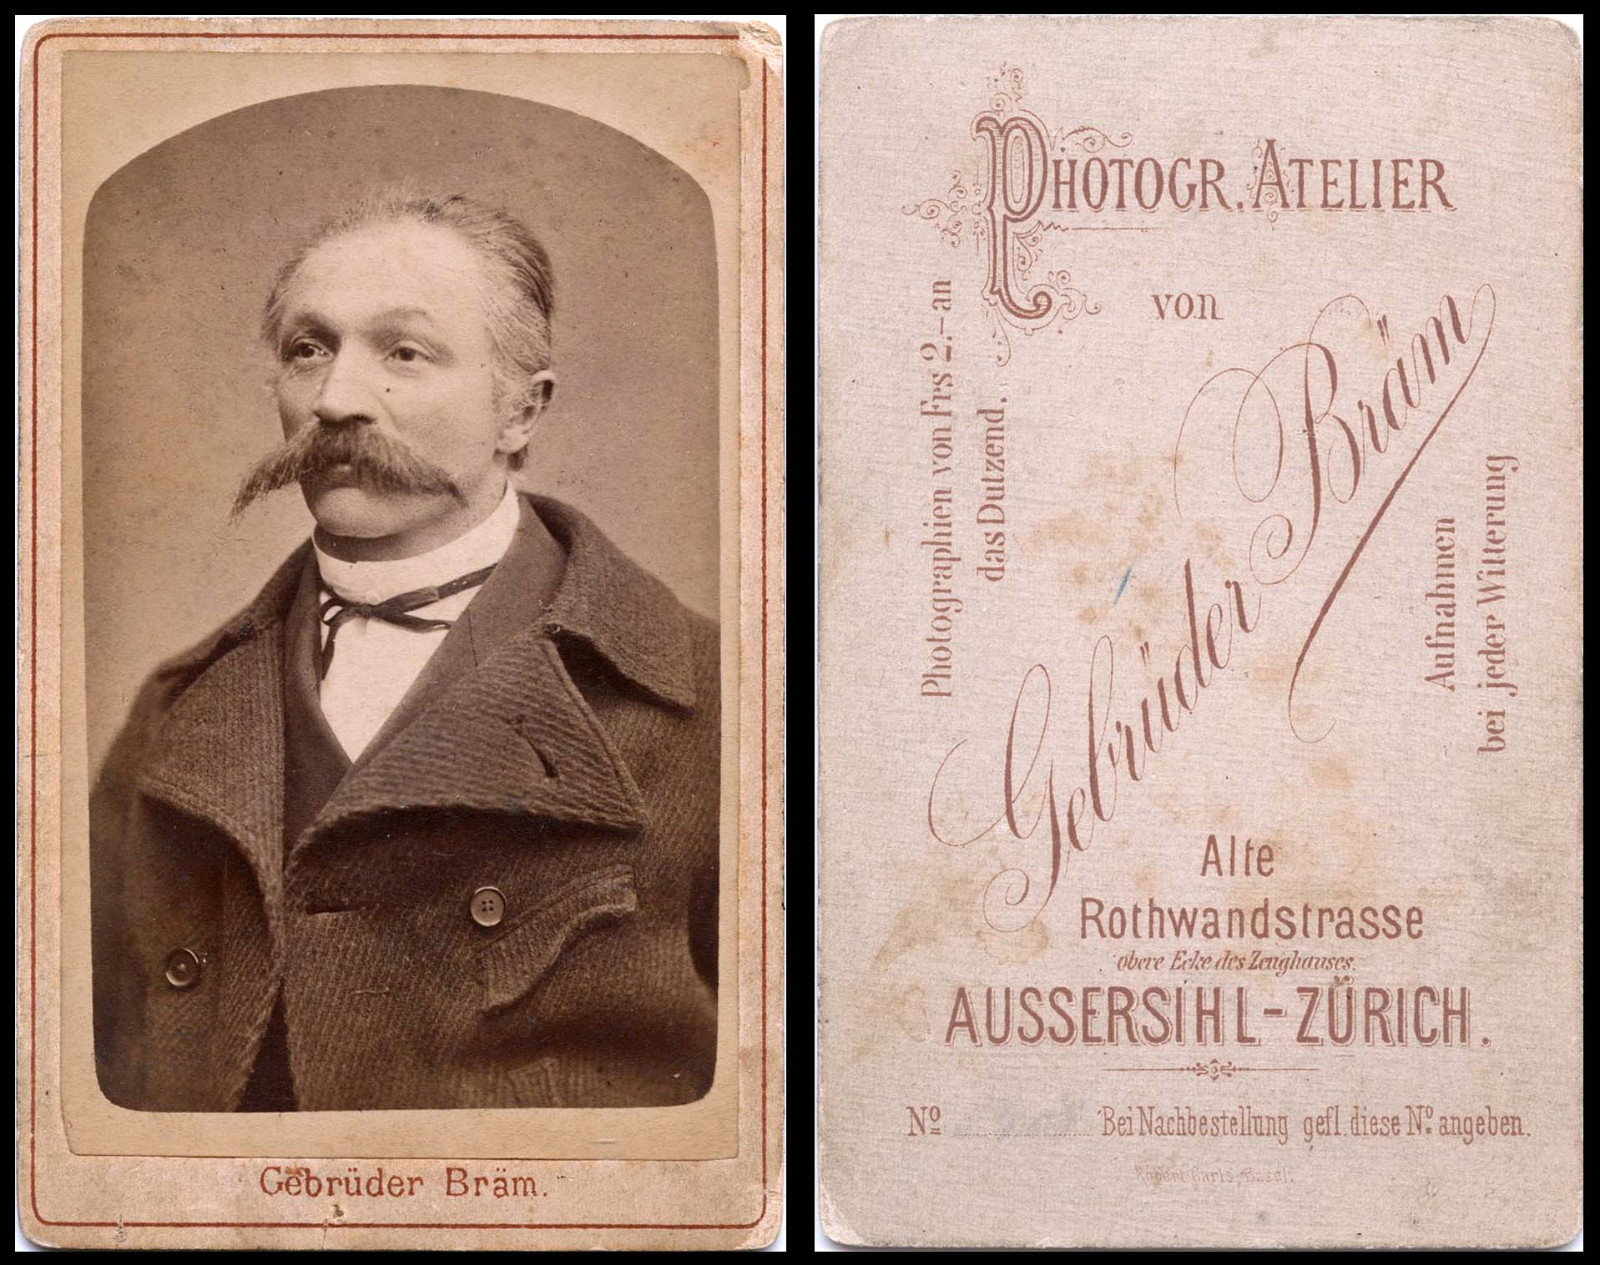 Gebrüder Bräm.
PHOTOGR. ATELIER
von
Gebrüder Bräm
Photographien von Frs 2.- an
das Dutzend.
Aufnahmen
bei jeder Witterung
Alte
Rothwandstrasse
obere Ecke des Zeughauses.
AUSSERSIHL-ZÜRICH.
No Bei Nachbestellung gefl. diese No. angeben.
Basel.